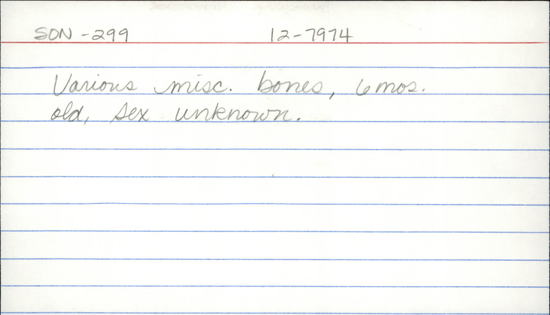 SON-299 12-7974
Various misc. bones, 6 mos.
old, sex unknown.